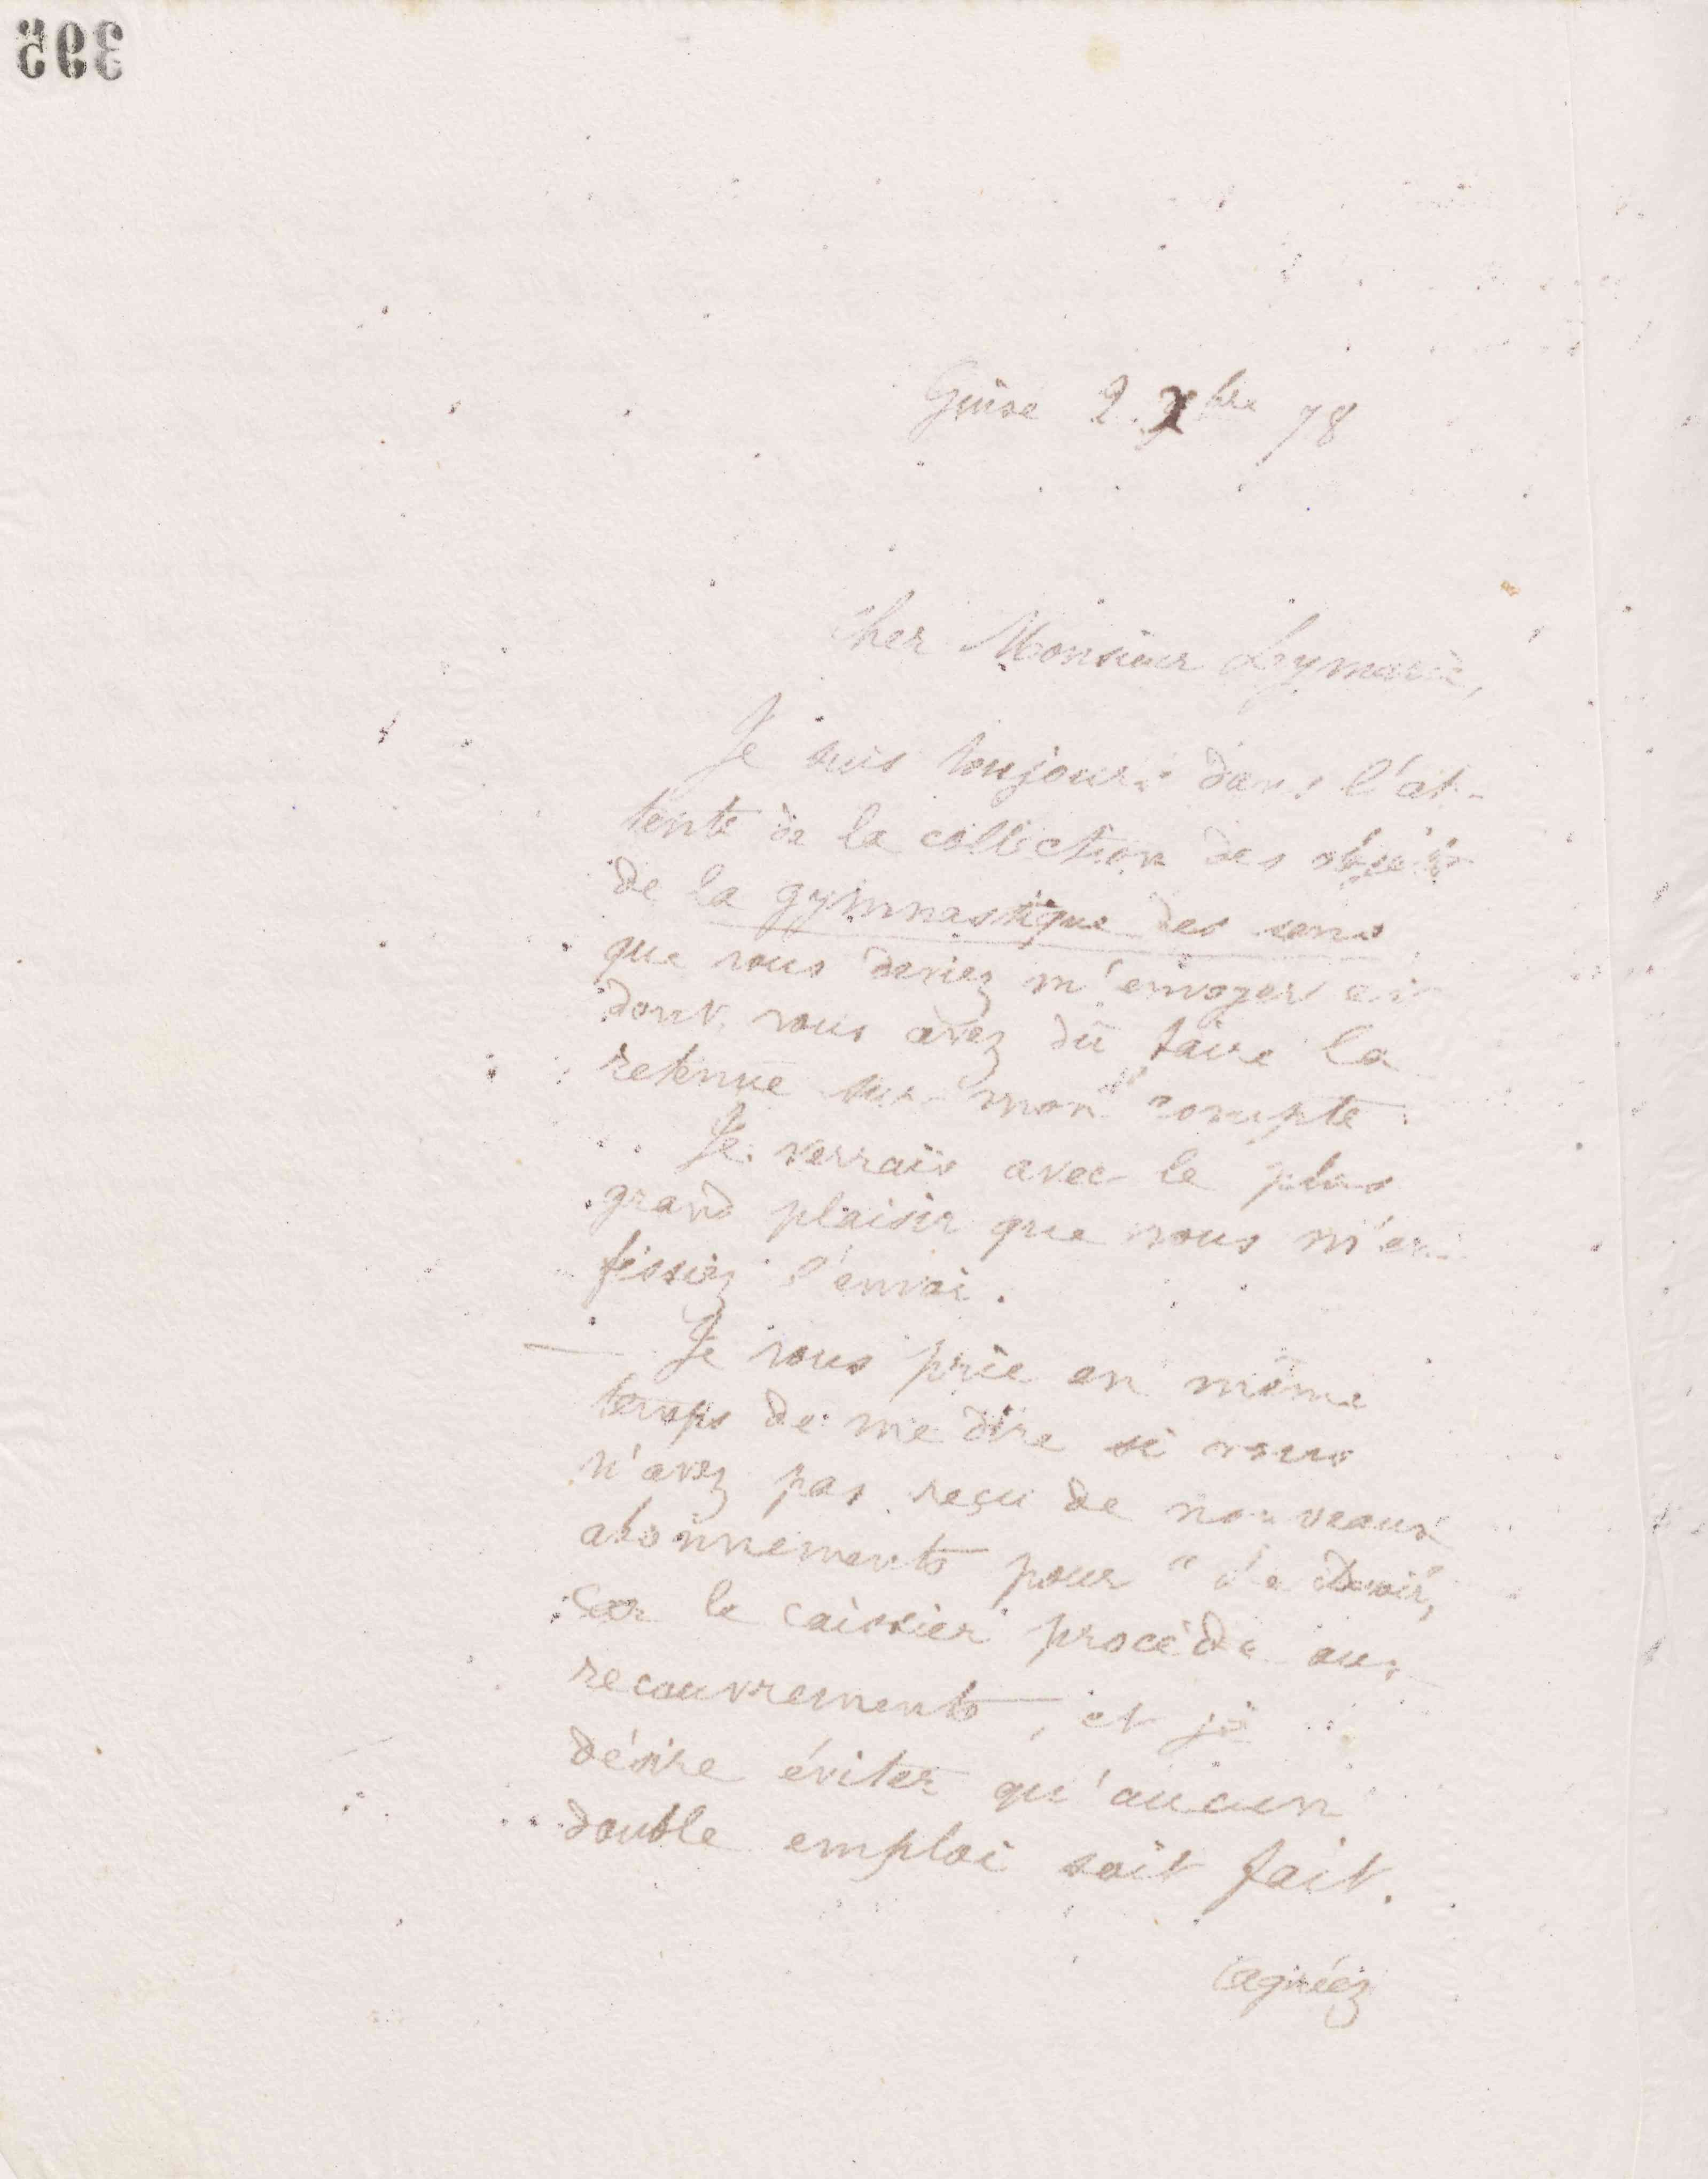 395
Guise 2 Xbre 78
Cher Monsieur Leymarie,
Je suis toujours dans l'at-
tente de la collection des objets
de la gymnastique des sens
que vous deviez m'envoyer et
dont vous avez dû faire la
retenue sur mon compte.
Je verrais avec le plus
grand plaisir que vous m'en
fissiez l'envoi.
Je vous prie en même
temps de me dire si vous
n'avez pas reçu de nouveaux
abonnements pour "Le Devoir,
car le caissier procède aux
recouvrements, et je
désire éviter qu'aucun
double emploi soit fait.
Agréez